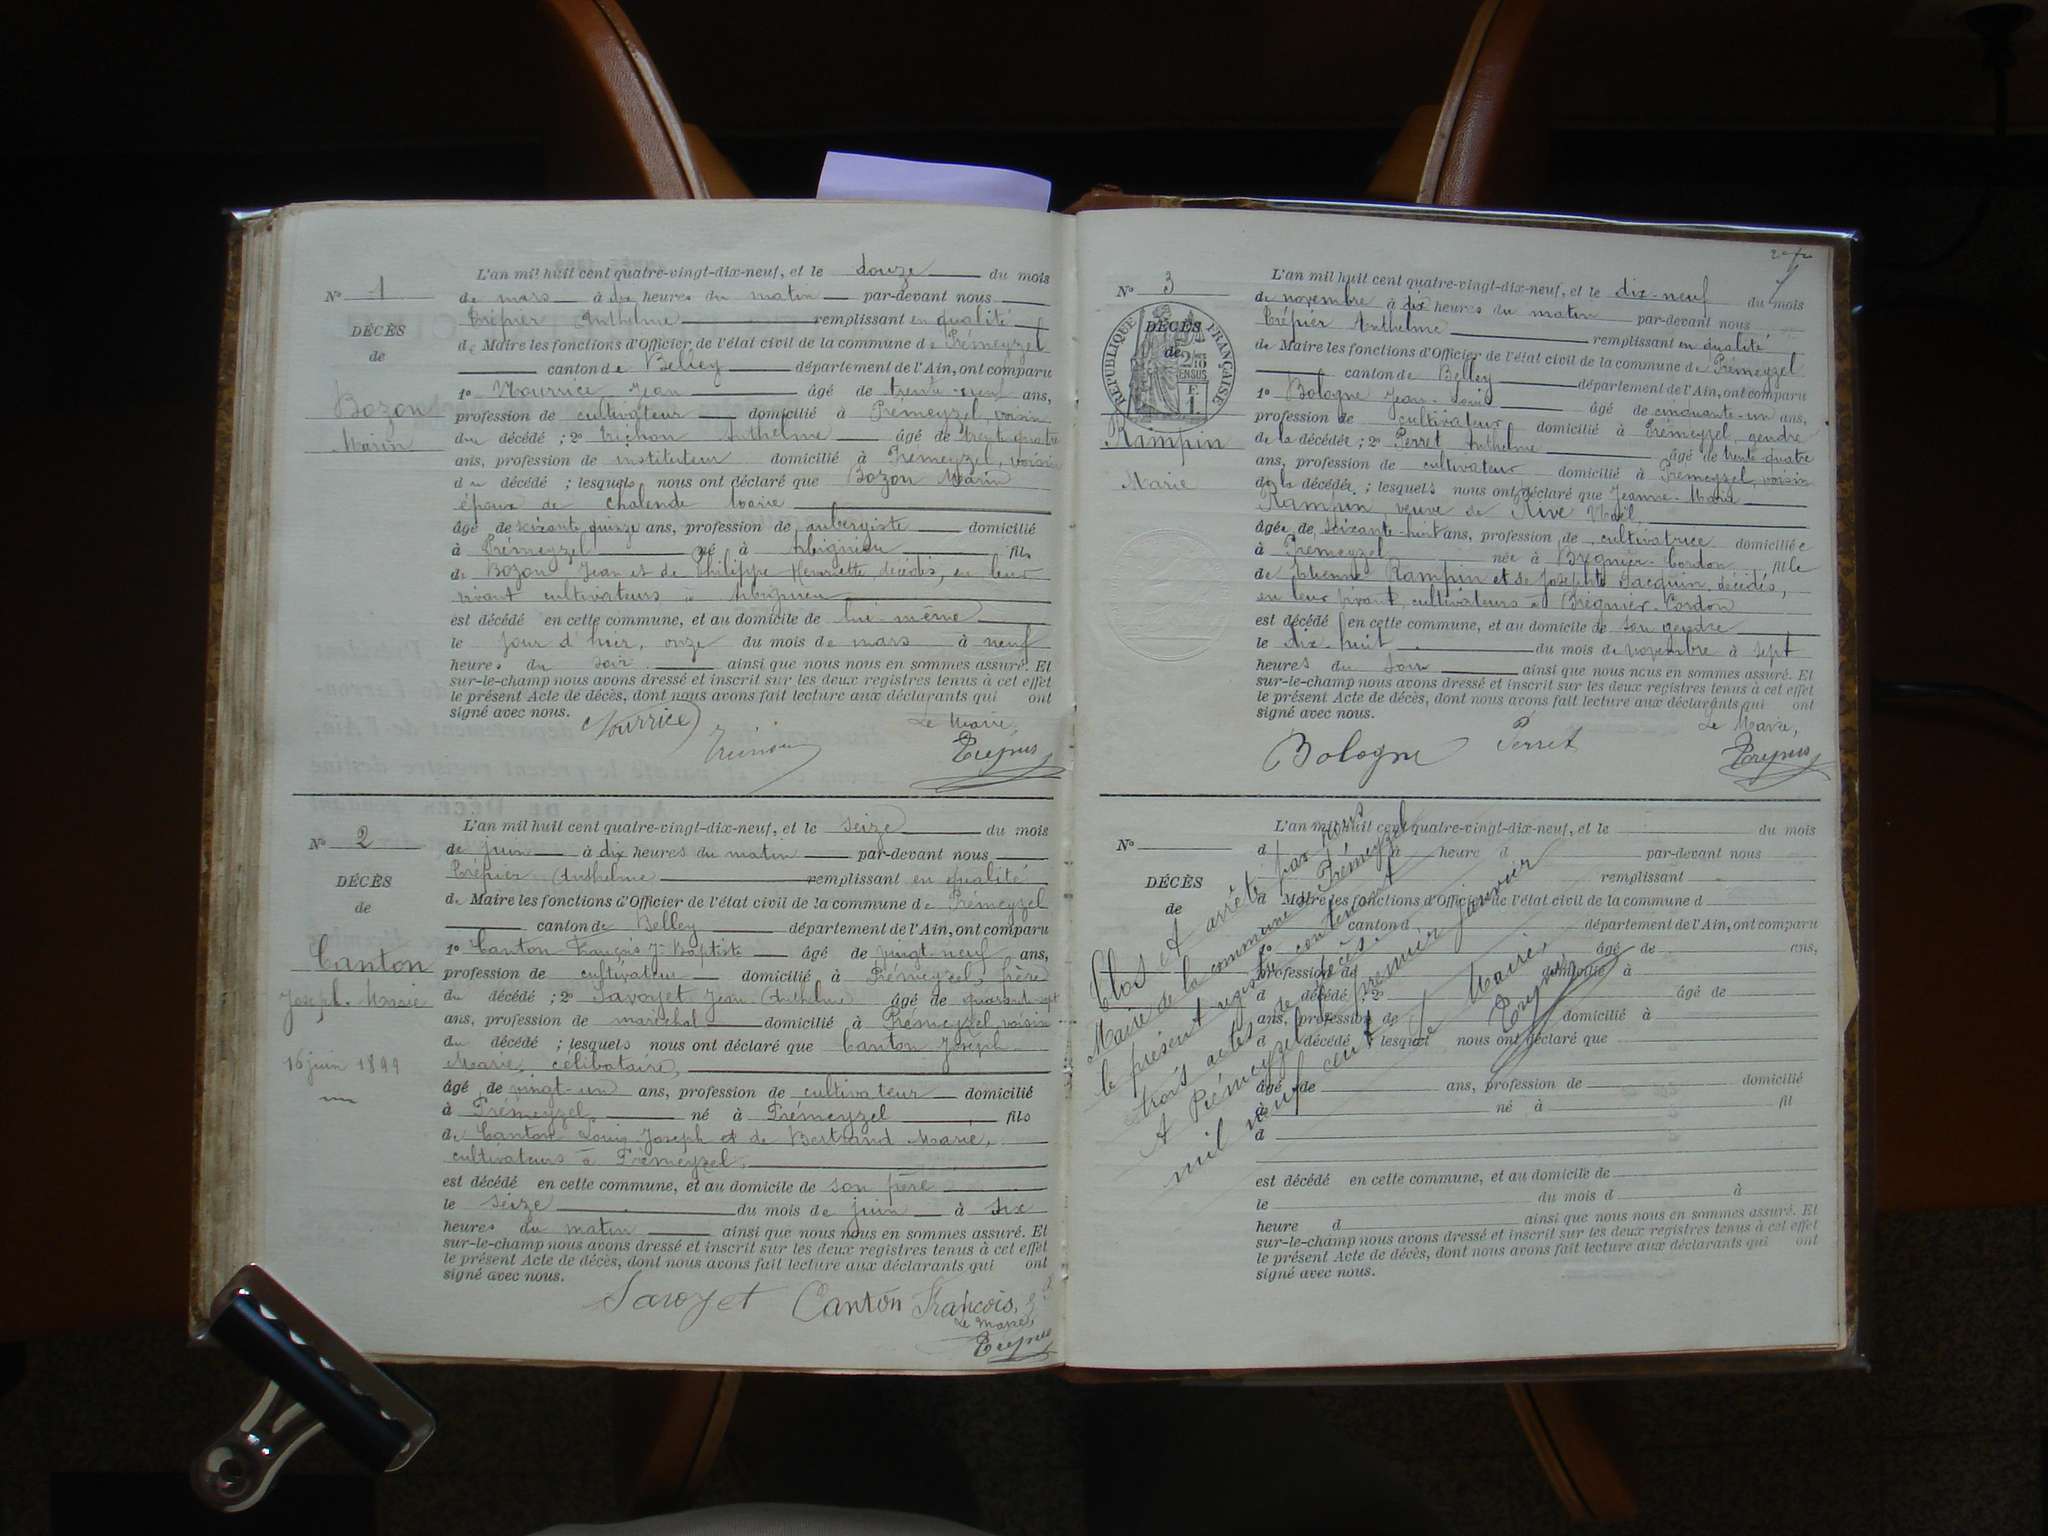 L'an mil huit cent quatre-vingt-dix-neuf, et le douze du mois
N° 1
de mars à dix heures du matin par-devant nous
Trépier Anthelme remplissant en qualité
DÉCÈS
de Maire les fonctions d'Officier de l'état civil de la commune de Prémeyzel
de
canton de Belley département de l'Ain, ont comparu
1° Maurice Jean âgé de trente-neuf ans,
Bozon
profession de cultivateur domicilié à Prémeyzel, voisin
Marin
du décédé ; 2° Trichon Anthelme âgé de trente-quatre
ans, profession de instituteur domicilié à Prémeyzel, voisin
du décédé ; lesquels nous ont déclaré que Bozon Marin
époux de Chalende Marie
âgé de soixante quinze ans, profession de aubergiste domicilié
à Prémeyzel né à Arbignieu fils
de Bozon Jean et de Philippe Henriette, décédés, en leur
vivant cultivateurs à Arbignieu
est décédé en cette commune, et au domicile de lui même
le jour d'hier, onze du mois de mars à neuf
heures du soir ainsi que nous nous en sommes assuré. Et
sur-le-champ nous avons dressé et inscrit sur les deux registres tenus à cet effet
le présent Acte de décès, dont nous avons fait lecture aux déclarants qui ont
signé avec nous.
Maurice Le Maire,
Trépier
L'an mil huit cent quatre-vingt-dix-neuf, et le seize du mois
N° 2
de juin à dix heures du matin par-devant nous
Trépier Anthelme remplissant en qualité
DÉCÈS
de Maire les fonctions d'Officier de l'état civil de la commune de Prémeyzel
de
canton de Belley département de l'Ain, ont comparu
1° Canton François Jn Baptiste âgé de vingt-neuf ans,
Canton
profession de cultivateur domicilié à Prémeyzel, frère
Joseph-Marie
du décédé ; 2° Savoyet Jean Anthelme âgé de quarante-sept
ans, profession de maréchal domicilié à Prémeyzel, voisin
du décédé ; lesquels nous ont déclaré que Canton Joseph-
16 juin 1899
Marie, célibataire,
âgé de vingt-un ans, profession de cultivateur domicilié
à Prémeyzel, né à Prémeyzel fils
de Canton Louis Joseph et de Bertrand Marie,
cultivateurs à Prémeyzel,
est décédé en cette commune, et au domicile de son père
le seize du mois de juin à six
heures du matin ainsi que nous nous en sommes assuré. Et
sur-le-champ nous avons dressé et inscrit sur les deux registres tenus à cet effet
le présent Acte de décès, dont nous avons fait lecture aux déclarants qui ont
signé avec nous.
Savoyet Canton François,
Le Maire,
Trépier
L'an mil huit cent quatre-vingt-dix-neuf, et le dix-neuf du mois
N° 3
de novembre à dix heures du matin par-devant nous
Trépier Anthelme remplissant en qualité
RÉPUBLIQUE FRANÇAISE
DÉCÈS
de Maire les fonctions d'Officier de l'état civil de la commune de Prémeyzel
de
canton de Belley département de l'Ain, ont comparu
1° Bologne Jean-Louis âgé de cinquante-un ans,
profession de cultivateur domicilié à Prémeyzel, gendre
Rampin
de la décédée ; 2° Perret Anthelme âgé de trente-quatre
ans, profession de cultivateur domicilié à Prémeyzel, voisin
Marie
de la décédée ; lesquels nous ont déclaré que Jeanne-Marie
Rampin, veuve de Rive Noël,
âgée de soixante-huit ans, profession de cultivatrice domiciliée
à Prémeyzel née à Brégnier-Cordon, fille
de Etienne Rampin et de Josephte Jacquin, décédés,
en leur vivant, cultivateurs à Brégnier-Cordon
est décédé en cette commune, et au domicile de son gendre
le dix-huit du mois de novembre à sept
heures du soir ainsi que nous nous en sommes assuré. Et
sur-le-champ nous avons dressé et inscrit sur les deux registres tenus à cet effet
le présent Acte de décès, dont nous avons fait lecture aux déclarants qui ont
signé avec nous.
Le Maire,
Bologne Perret Trépier
L'an mil huit cent quatre-vingt-dix-neuf, et le du mois
N°
d à heure d par-devant nous
remplissant
DÉCÈS
d Maire les fonctions d'Officier de l'état civil de la commune d
de
canton d département de l'Ain, ont comparu
âgé de ans,
profession de domicilié à
d décédé ; 2° âgé de
ans, profession de domicilié à
d décédé lesquel nous ont déclaré que
âgé de ans, profession de domicilié
à né à fil
d
est décédé en cette commune, et au domicile de
le du mois d à
heure d ainsi que nous nous en sommes assuré. Et
sur-le-champ nous avons dressé et inscrit sur les deux registres tenus à cet effet
le présent Acte de décès, dont nous avons fait lecture aux déclarants qui ont
signé avec nous.
Clos et arrêté par nous
Maire de la commune de Prémeyzel
le présent registre contenant
trois actes de décès.
A Prémeyzel, le premier janvier
mil neuf cent
Le Maire,
Trépier